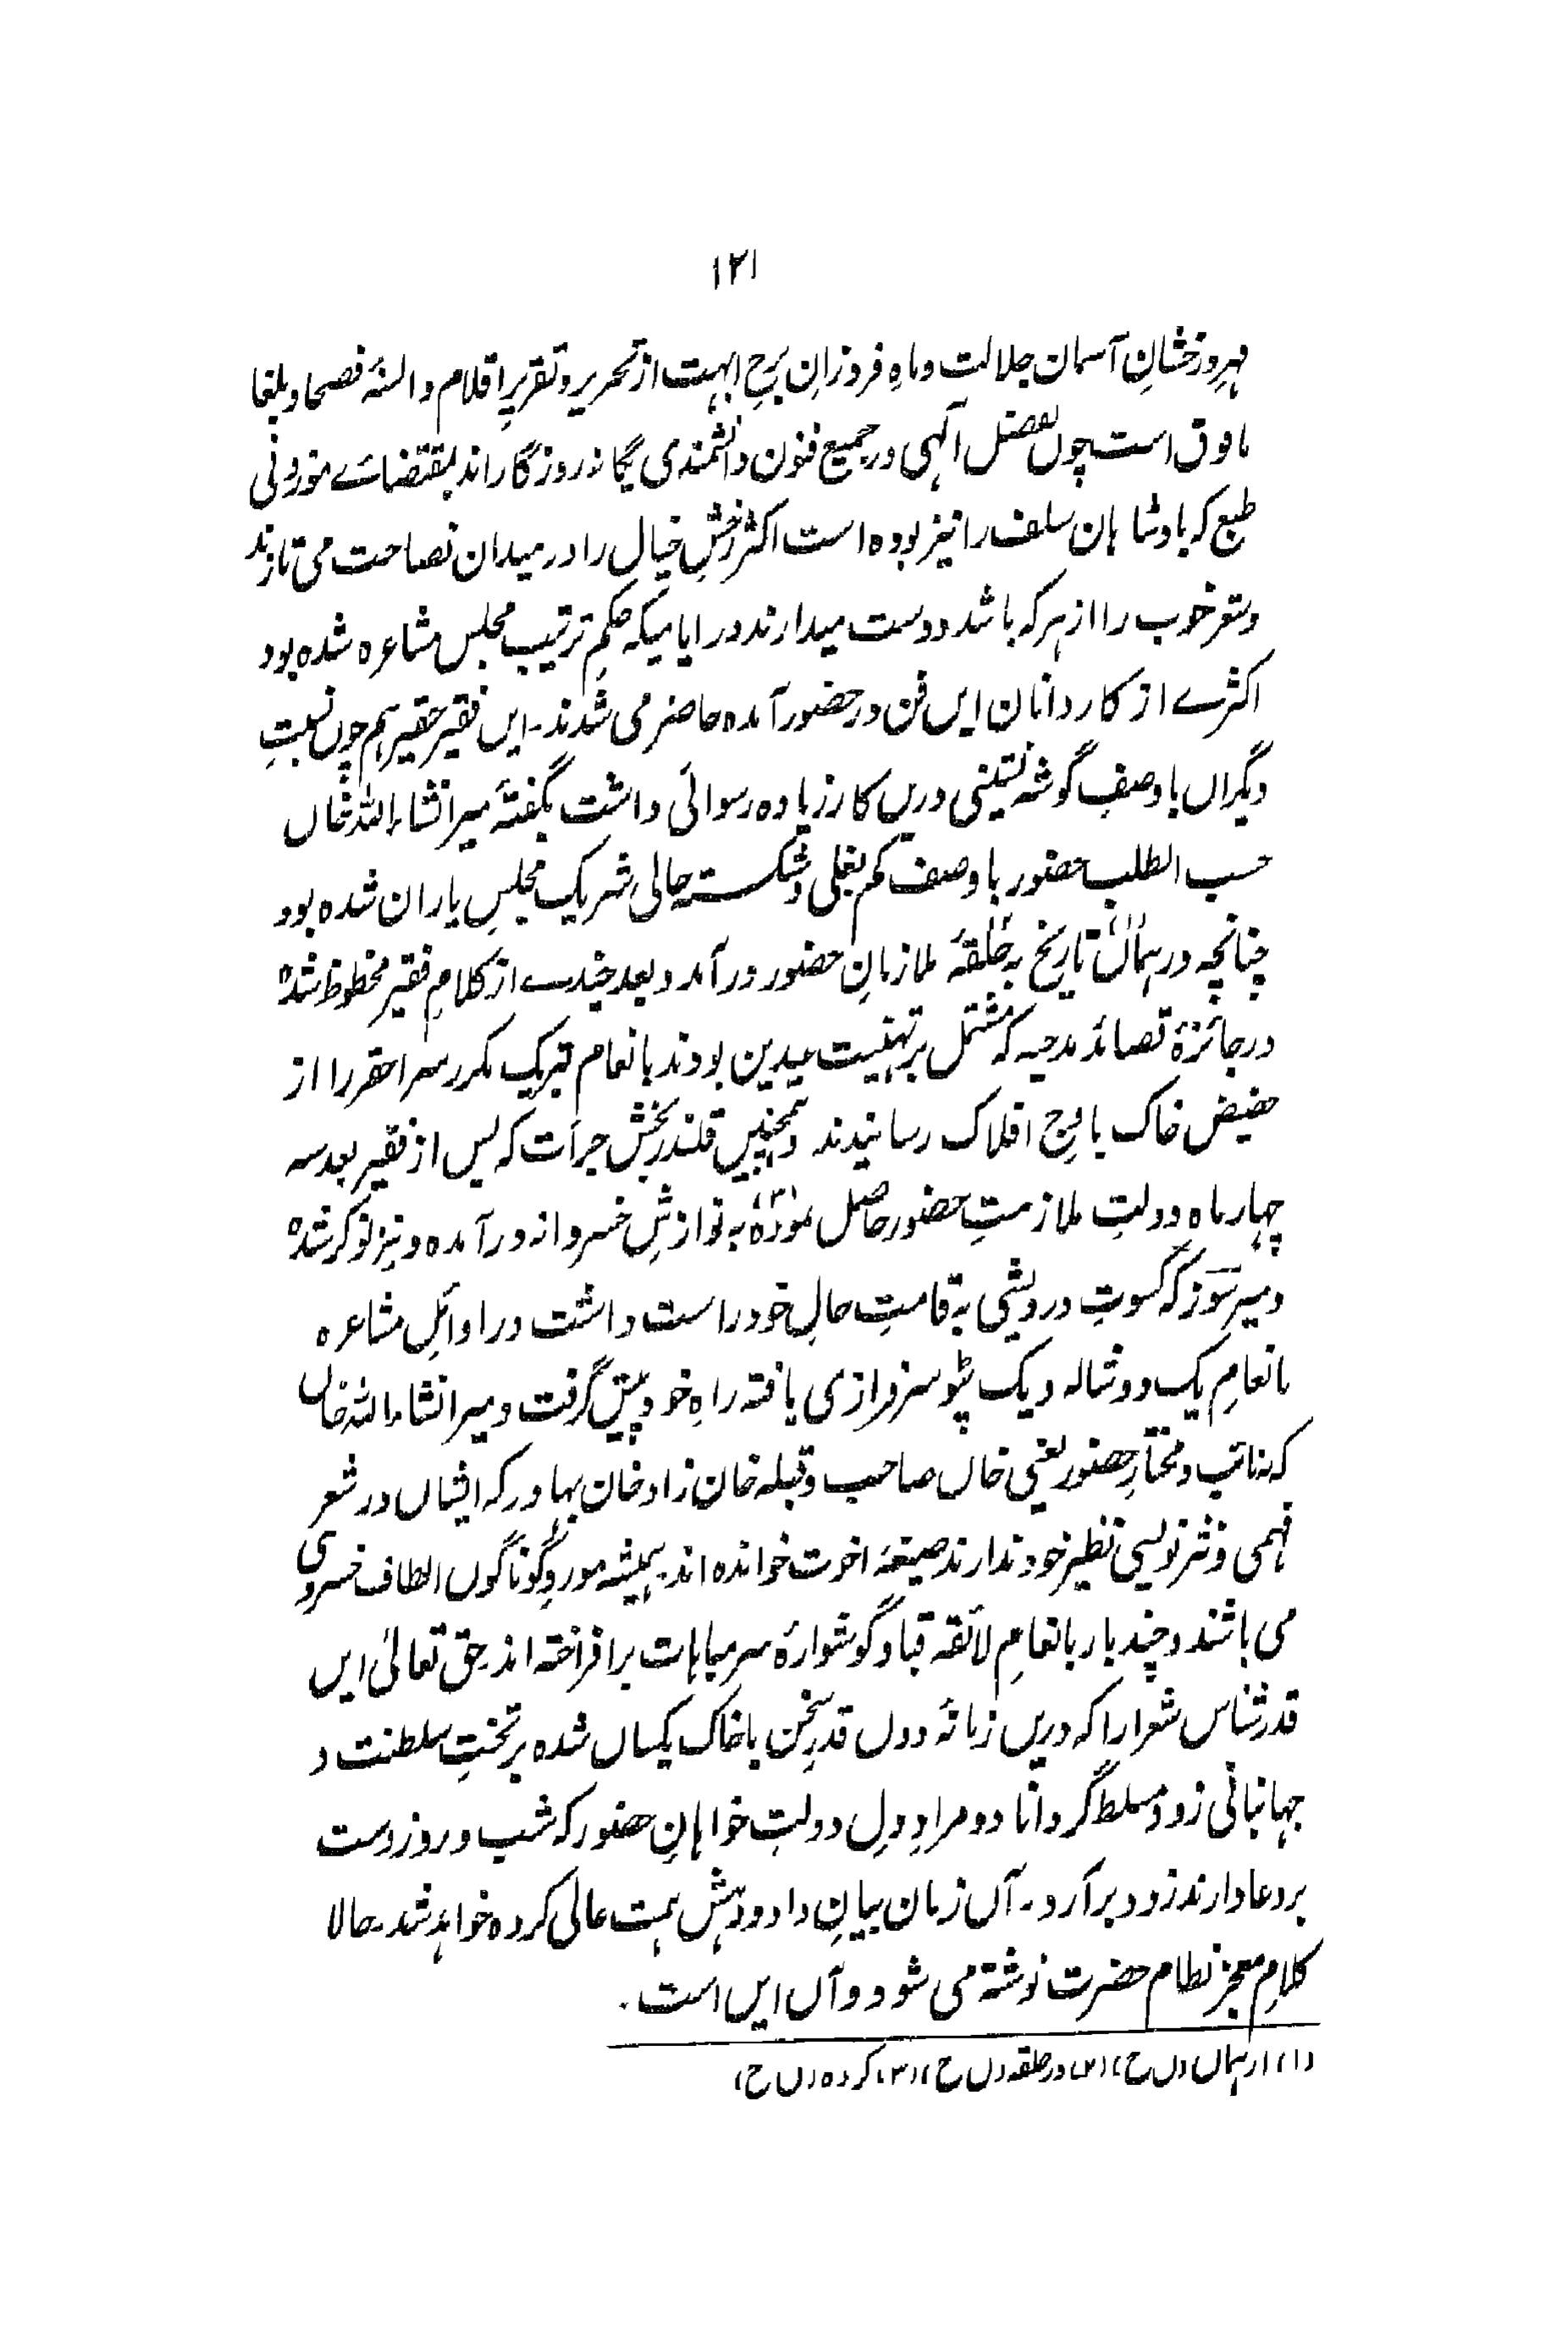 ۱۲۱
مہرِ درخشانِ آسمان جلالت و ماہِ فروزانِ برجِ ابہت از تحریر و تقریرِ اقلام و السنۂ فصحا و بلغا
مافوق است چوں بفضل آلہی در جمیع فنون دانشمندی یگانہ روزگار اند بمقتضائے موزونی
طبع کہ بادشاہان سلف را نیز بودہ است اکثر رخشِ خیال را در میدان فصاحت می تازند
و شعر خوب را از ہر کہ باشد دوست میدارند در ایامیکہ حکمِ ترتیب مجلس مشاعرہ شدہ بود
اکثرے از کاردانان ایں فن در حضور آمدہ حاضر می شدند۔ ایں فقیر حقیر ہم چوں نسبتِ
دیگراں با وصفِ گوشہ نشینی دریں کار زیادہ رسوائی داشت بگفتۂ میر انشاء اللہ خاں
حسب الطلب حضور با وصف کم بغلی و شکستہ حالی شریک مجلسِ یاران شدہ بود
چنانچہ در ہماں(۱) تاریخ بہ حلقۂ(۲) ملازمانِ حضور در آمد و بعد چندے از کلامِ فقیر محظوظ شدہ
در جائزۂ قصائد مدحیہ کہ مشتمل بر تہنیت عیدین بودند بانعام تبریک مکرر سر احقر را از
حضیض خاک باوجِ افلاک رسانیدند و ہمچنیں قلندر بخش جرأت کہ پس از فقیر بعد سہ
چہار ماہ دولتِ ملازمتِ حضور حاصل نمودہ(۳) بہ نوازشِ خسروانہ در آمدہ و نیز نوکر شدہ
و میر سوز کہ کسوتِ درویشی بہ قامتِ حالِ خود راست داشت در اوائلِ مشاعرہ
بانعامِ یک دوشالہ و یک پٹو سرفرازی یافتہ راہِ خود پیش گرفت و میر انشاء اللہ خاں
کہ نائب و مختارِ حضور یعنی خاں صاحب و قبلہ خان زاد خان بہادر کہ ایشاں در شعر
فہمی و نثر نویسی نظیر خود ندارند صیغۂ اخوت خواندہ اند ہمیشہ موردِ گوناگوں الطاف خسروی
می باشند و چند بار بانعامِ لائقہ قبا و گوشوارہ سر مباہات برافراختہ اند۔ حق تعالیٰ ایں
قدر شناس شعرا را کہ دریں زمانۂ دوں قدرِ سخن با خاک یکساں شدہ بر تختِ سلطنت و
جہانبانی زود مسلط گرداناد و مرادِ دلِ دولت خواہانِ حضور کہ شب و روز دست
بر دعا دارند زود برآرد۔ آں زمان بیانِ داد و دہش ہمت عالی کردہ خواہد شد۔ حالا
کلامِ معجز نظام حضرت نوشتہ می شود و آں ایں است۔
(۱) از ہماں (ں ح) (۲) در حلقہ (ں ح) (۳) کردہ (ں ح)